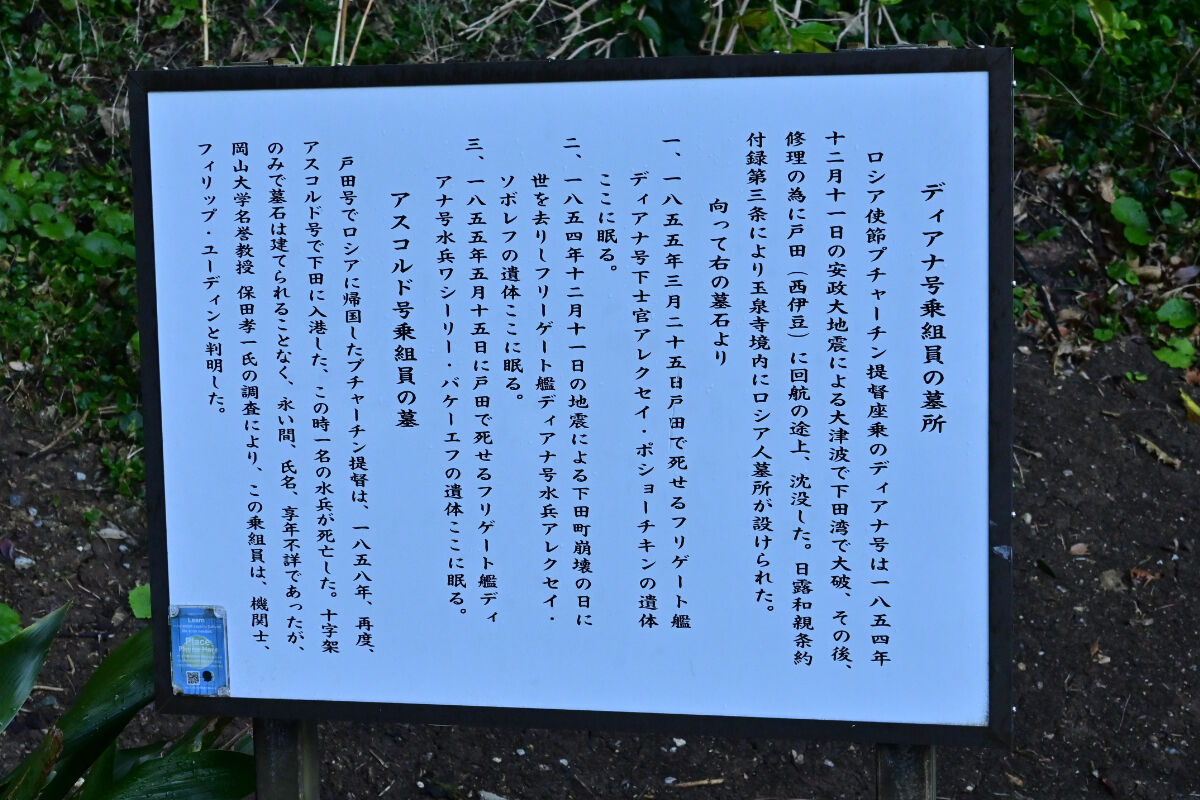 ディアナ号乗組員の墓所
ロシア使節プチャーチン提督座乗のディアナ号は一八五四年
十二月十一日の安政大地震による大津波で下田湾で大破、その後、
修理の為に戸田（西伊豆）に回航の途上、沈没した。日露和親条約
付録第三条により玉泉寺境内にロシア人墓所が設けられた。
向って右の墓石より
一、一八五五年三月二十五日戸田で死せるフリゲート艦
ディアナ号下士官アレクセイ・ポショーチキンの遺体
ここに眠る。
二、一八五四年十二月十一日の地震による下田町崩壊の日に
世を去りしフリーゲート艦ディアナ号水兵アレクセイ・
ソボレフの遺体ここに眠る。
三、一八五五年五月十五日に戸田で死せるフリゲート艦ディ
アナ号水兵ワシーリー・バケーエフの遺体ここに眠る。
アスコルド号乗組員の墓
戸田号でロシアに帰国したプチャーチン提督は、一八五八年、再度、
アスコルド号で下田に入港した、この時一名の水兵が死亡した。十字架
のみで墓石は建てられることなく、永い間、氏名、享年不詳であったが、
岡山大学名誉教授 保田孝一氏の調査により、この乗組員は、機関士、
フィリップ・ユーディンと判明した。
Learn
Place
Phone Here